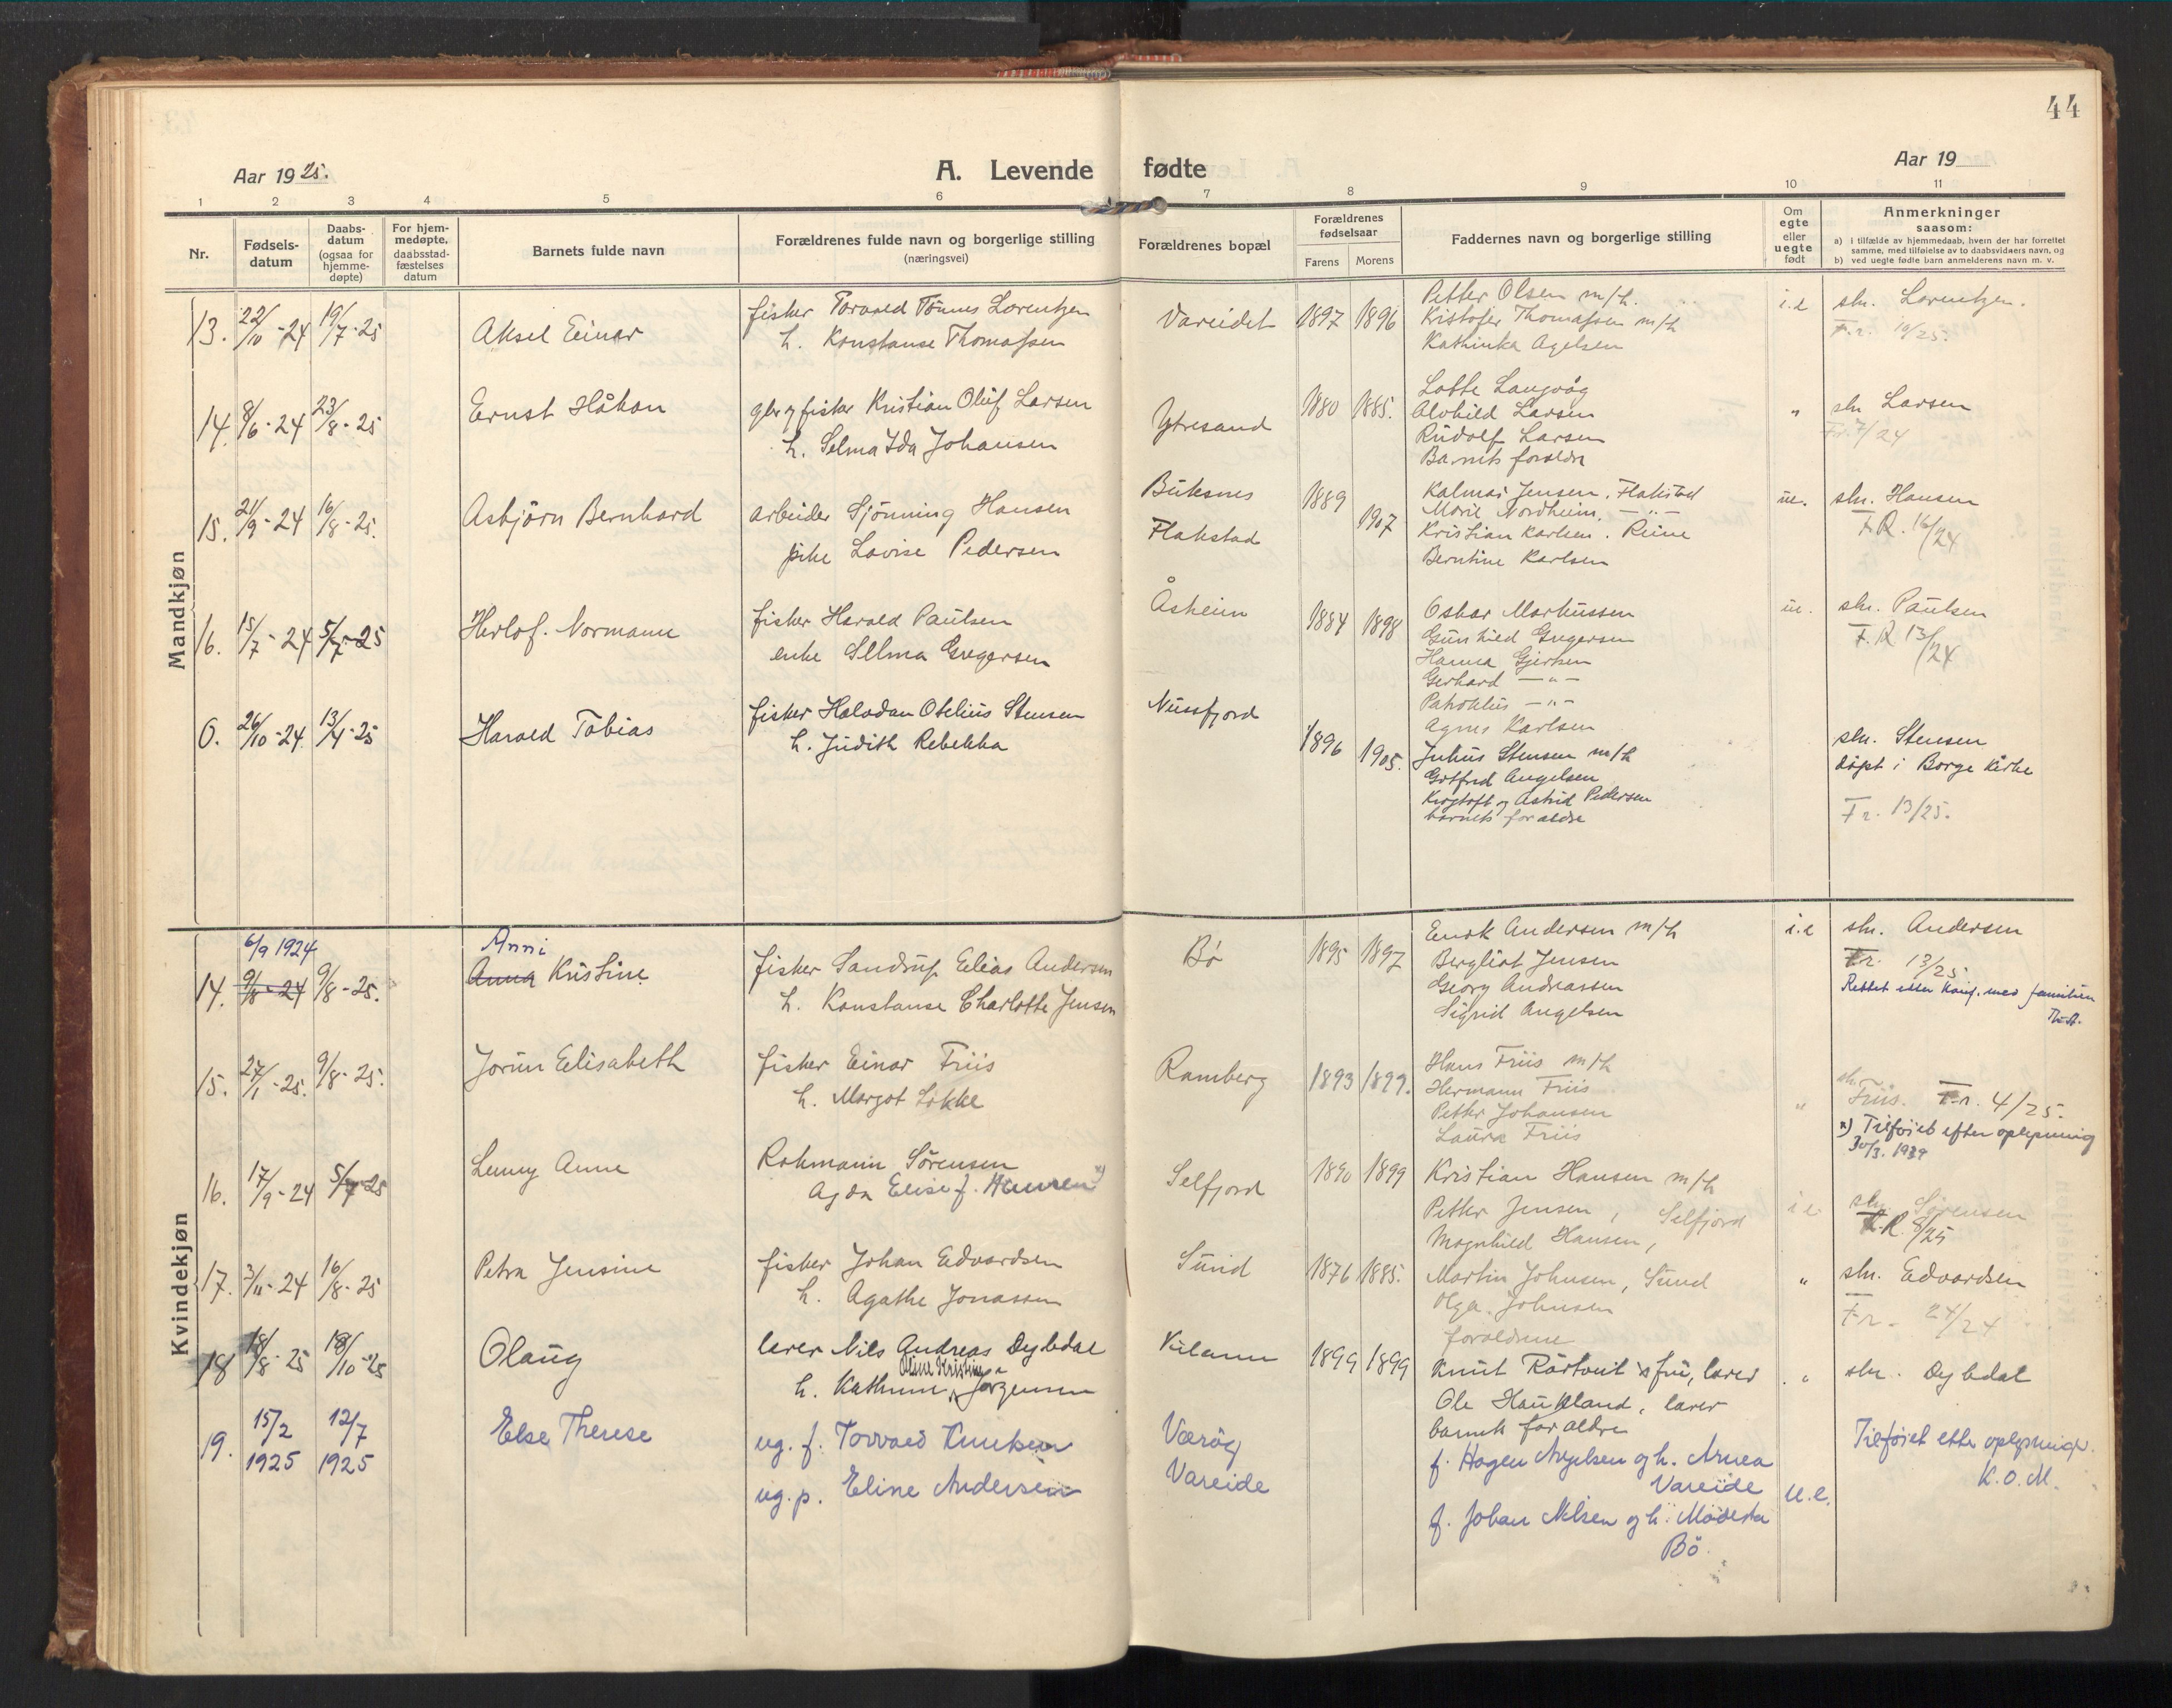 44
Aar 1925.
A. Levende fødte
Aar 19
1 2 3 4 5 6 7 8 9 10 11
Nr.
Fødsels-
datum
Daabs-
datum
(ogsaa for
hjemme-
døpte)
For hjem-
medøpte,
daabsstad-
fæstelses
datum
Barnets fulde navn
Forældrenes fulde navn og borgerlige stilling
(næringsvei)
Forældrenes bopæl
Forældrenes
fødselsaar
Farens Morens
Faddernes navn og borgerlige stilling
Om
egte
eller
uegte
født
Anmerkninger
saasom:
a) i tilfælde av hjemmedaab, hvem der har forrettet
samme, med tilføielse av to daabsvidners navn, og
b) ved uegte fødte barn anmelderens navn m. v.
Mandkjøn
13. 22/10-24 19/7-25 Aksel Einar
fisker Torvald Tönnes Lorentzen
h. Konstanse Thomassen
Vareidet 1897 1896
Petter Olsen m/h.
Kristofer Thomassen m/h
Kathinka Agelsen
i.e sln. Lorentzen.
F.r. 10/25.
14. 8/6-24 23/8-25 Ernst Håkon
gbr og fisker Kristian Oluf Larsen
h. Selma Ida Johansen
Ytresand 1880 1885.
Lotte Langvåg
Alvhild Larsen
Rudolf Larsen
Barnets foreldre
" sln Larsen
Fr. 7/24
15. 21/9-24 16/8-25. Asbjörn Bernhard
arbeider Sjönning Hansen
pike Lovise Pedersen
Buksnes
Flakstad
1889 1907
Kalmar Jensen. Flakstad
Marie Nordheim. —"—
Kristian Karlsen. Reine
Berntine Karlsen
ue. sln. Hansen
F.R. 16/24
16. 15/7-24 5/7-25 Herlof. Normann
fisker Harald Paulsen
enke Selma Gregersen
Åsheim 1884 1898
Oskar Markussen
Gunhild Gregersen
Hanna Gjertsen
Gerhard —"—
—"—
Agnes Karlsen
ue. sln. Paulsen
F.R 13/24
0. 26/10-24 13/4-25 Harald Tobias
fisker Halvdan Otelius Stensen
h. Judith Rebekka
Nussfjord 1896 1905.
Julius Stensen m/h
Gotfred Angelsen
og Astrid Pedersen
barnets foraldre
sln. Stensen
döpt i Borge kirke
Fr. 13/25.
Kvindekjøn
14. 6/9 1924 9/8-24 9/8-25.
Anni
Anna Kristine
fisker Sandrup Elias Andersen
h. Konstanse Charlotte Jensen
Bö 1895 1897
Enok Andersen m/h
Bergliot Jensen
Georg Andreassen
Sigrid Angelsen
i.e sln. Andersen
Fr. 13/25.
Rettet etter konf. med familien
15. 27/1-25. 9/8-25. Jorun Elisabeth
fisker Einar Friis
h. Margot Lökke
Ramberg 1893 1899.
Hans Friis m/h
Hermann Friis
Petter Johansen
Laura Friis
" sln. Friis. Fr. 4/25.
x) Tilföiet efter oplysning
30/3. 1934
16. 17/9-24 5/7-25 Lenny Anne
Rohmann Sörensen
Agda Elise f. Hansen x)
Selfjord 1890 1899
Kristian Hansen m/h
Petter Jensen, Selfjord
Magnhild Hansen,
i.e sln. Sörensen
F.R. 8/25
17. 3/11-24 16/8-25 Petra Jensine
fisker Johan Edvardsen
h. Agathe Jonassen
Sund 1876 1885.
Martin Johnsen, Sund
Olga. Johnsen
foreldrene
" sln. Edvardsen
Fr. 24/24
18 18/8-25 18/10-25 Olaug
lærer Nils Andreas Dybdal
Oline Kristine
h. Kathrine Jörgensen
1899 1899
Knut Rörtveit og frue, lærer
Ole Haukland, lærer
barnets foraldre
" sln. Dybdal
19. 15/2 1925 12/7 1925 Else Therese
ug. f. Torvald Knutsen
ug. p. Eline Andersen
Værøy
Vareide
f. Hagen Angelsen og h. Arnea
Vareide
f. Johan Nilsen og h. Modesta
Bö.
u.e.
Tilföiet etter oplysninger.
K.O.M.